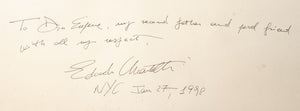 To Don Eugene, my second father and good friend
with all my respect.
Eduardo
NYC Jan 27, 1998